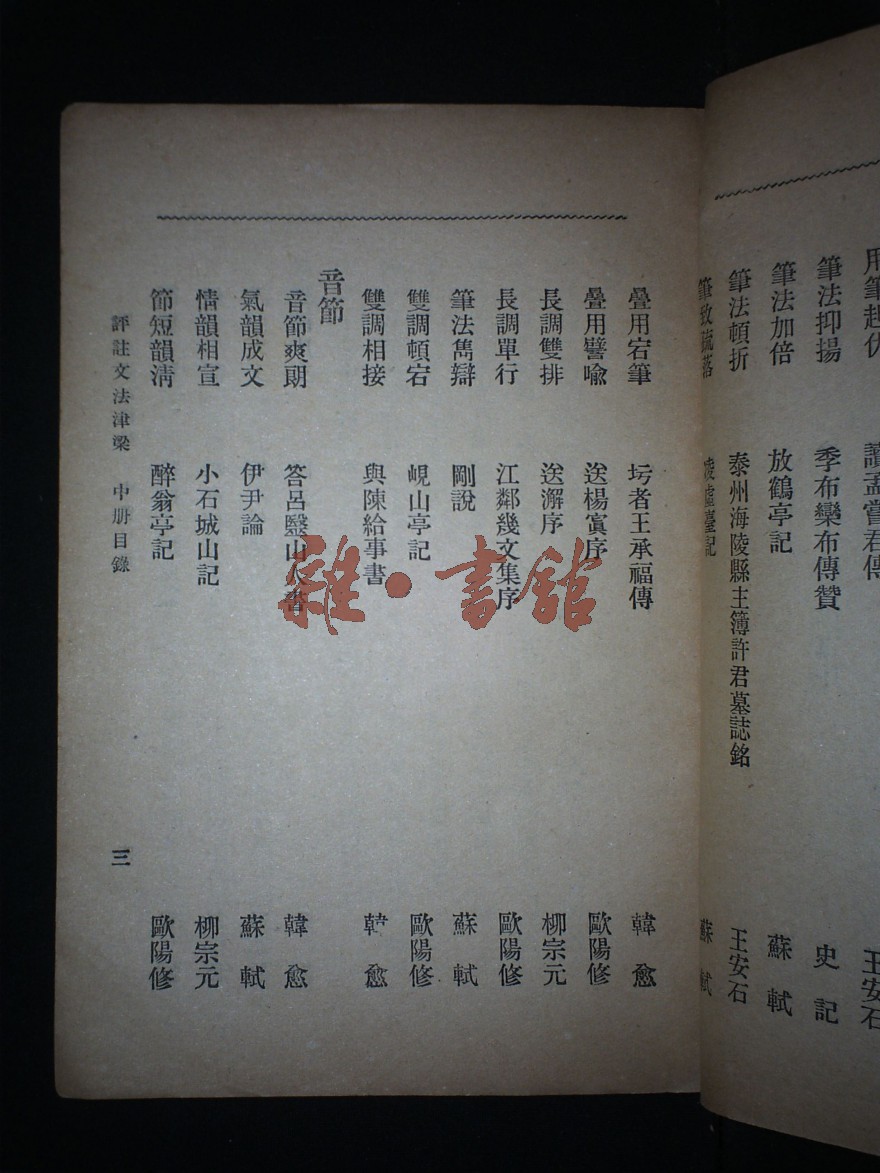 用筆起伏 讀孟嘗君傳 王安石
筆法抑揚 季布欒布傳贊 史記
筆法加倍 放鶴亭記 蘇軾
筆法頓折 泰州海陵縣主簿許君墓誌銘 王安石
筆致疏落 凌虛臺記 蘇軾
疊用宕筆 圬者王承福傳 韓愈
疊用譬喻 送楊寘序 歐陽修
長調雙排 送澥序 柳宗元
長調單行 江鄰幾文集序 歐陽修
筆法雋辯 剛說 蘇軾
雙調頓宕 峴山亭記 歐陽修
雙調相接 與陳給事書 韓愈
音節
音節爽朗 答呂毉山人書 韓愈
氣韻成文 伊尹論 蘇軾
情韻相宣 小石城山記 柳宗元
節短韻淸 醉翁亭記 歐陽修
評註文法津梁 中册目錄 三
雜·書館